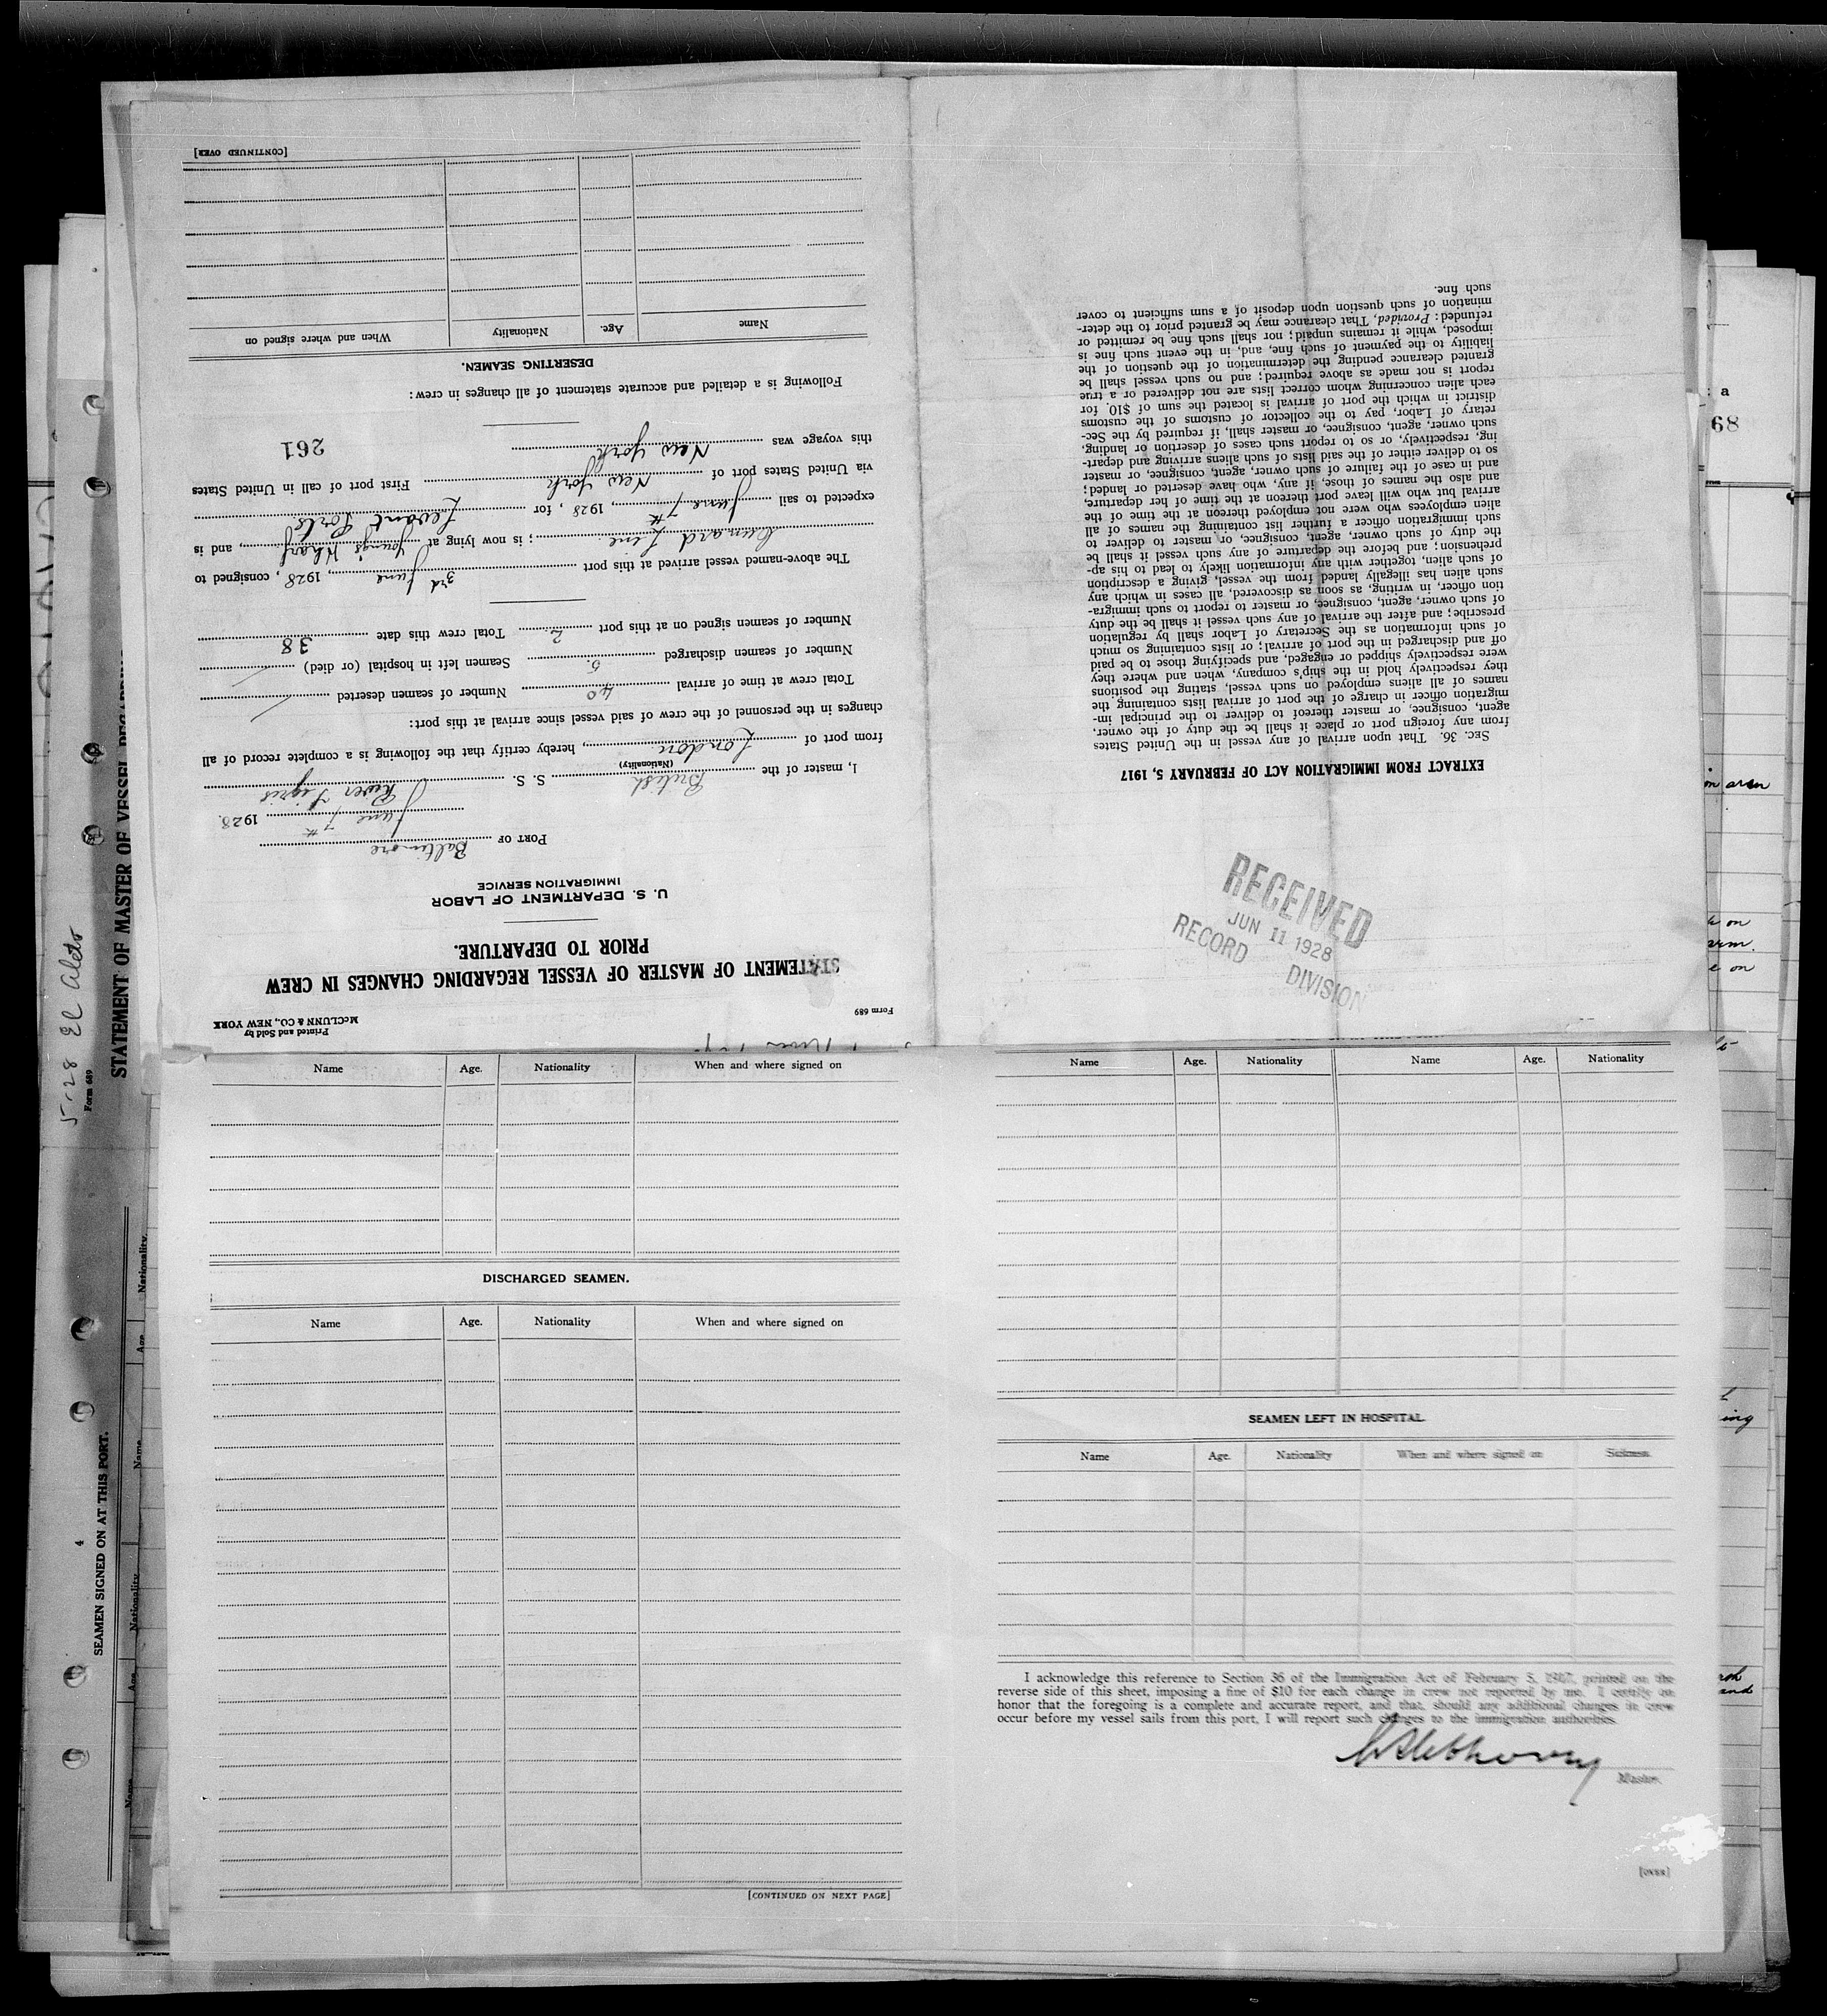 Form 689
Printed and Sold by
McCLUNN & CO., NEW YORK
STATEMENT OF MASTER OF VESSEL REGARDING CHANGES IN CREW
PRIOR TO DEPARTURE.
U. S. DEPARTMENT OF LABOR
IMMIGRATION SERVICE
PORT OF Baltimore
June 7th 1928.
I, master of the British S. S. River Tigris
(Nationality)
from port of London, hereby certify that the following is a complete record of all
changes in the personnel of the crew of said vessel since arrival at this port:
Total crew at time of arrival 40 Number of seamen deserted /
Number of seamen discharged Seamen left in hospital (or died) /
Number of seamen signed on at this port 2. Total crew this date 38
The above-named vessel arrived at this port 3rd June, 1928, consigned to
Cunard Line; is now lying at Young's Wharf, and is
expected to sail June 7th, 1928, for Levant Ports
via United States port of New York First port of call in United States
this voyage was New York
261
Following is a detailed and accurate statement of all changes in crew:
DESERTING SEAMEN.
Name Age. Nationality When and where signed on
[CONTINUED OVER]
EXTRACT FROM IMMIGRATION ACT OF FEBRUARY 5, 1917
SEC. 36. That upon arrival of any vessel in the United States
from any foreign port or place it shall be the duty of the owner,
agent, consignee, or master thereof to deliver to the principal im-
migration officer in charge of the port of arrival lists containing the
names of all aliens employed on such vessel, stating the positions
they respectively hold in the ship's company, when and where they
were respectively shipped or engaged, and specifying those to be paid
off and discharged in the port of arrival; or lists containing so much
of such information as the Secretary of Labor shall by regulation
prescribe; and after the arrival of any such vessel it shall be the duty
of such owner, agent, consignee, or master to report to such immigra-
tion officer, in writing, as soon as discovered, all cases in which any
such alien has illegally landed from the vessel, giving a description
of such alien, together with any information likely to lead to his ap-
prehension; and before the departure of any such vessel it shall be
the duty of such owner, agent, consignee, or master to deliver to
such immigration officer a further list containing the names of all
alien employees who were not employed thereon at the time of the
arrival but who will leave port thereon at the time of her departure,
and also the names of those, if any, who have deserted or landed;
and in case of the failure of such owner, agent, consignee, or master
so to deliver either of the said lists of such aliens arriving and depart-
ing, respectively, or so to report such cases of desertion or landing,
such owner, agent, consignee, or master shall, if required by the Sec-
retary of Labor, pay to the collector of customs of the customs
district in which the port of arrival is located the sum of $10. for
each alien concerning whom correct lists are not delivered or a true
report is not made as above required; and no such vessel shall be
granted clearance pending the determination of the question of the
liability to the payment of such fine, and, in the event such fine is
imposed, while it remains unpaid; nor shall such fine be remitted or
refunded: Provided, That clearance may be granted prior to the deter-
mination of such question upon deposit of a sum sufficient to cover
such fine.
RECEIVED
JUN 11 1928
RECORD DIVISION
Name Age. Nationality When and where signed on
DISCHARGED SEAMEN.
Name Age. Nationality When and where signed on
[CONTINUED ON NEXT PAGE]
Name Age. Nationality Name Age. Nationality
SEAMEN LEFT IN HOSPITAL
Name Age. Nationality When and where signed on Sickness
I acknowledge this reference to Section 36 of the Immigration Act of February 5, 1917, printed on the
reverse side of this sheet, imposing a fine of $10 for each change in crew not reported by me. I certify on
honor that the foregoing is a complete and accurate report, and that, should any additional changes in crew
occur before my vessel sails from this port, I will report such changes to the immigration authorities.
Master.
[OVER]
5-28 El Aleto
Form 689
STATEMENT OF MASTER OF VESSEL REGARDING
4
SEAMEN SIGNED ON AT THIS PORT.
Name Age Nationality Name Age Nationality
a
68
on
arm.
e on
ing
and